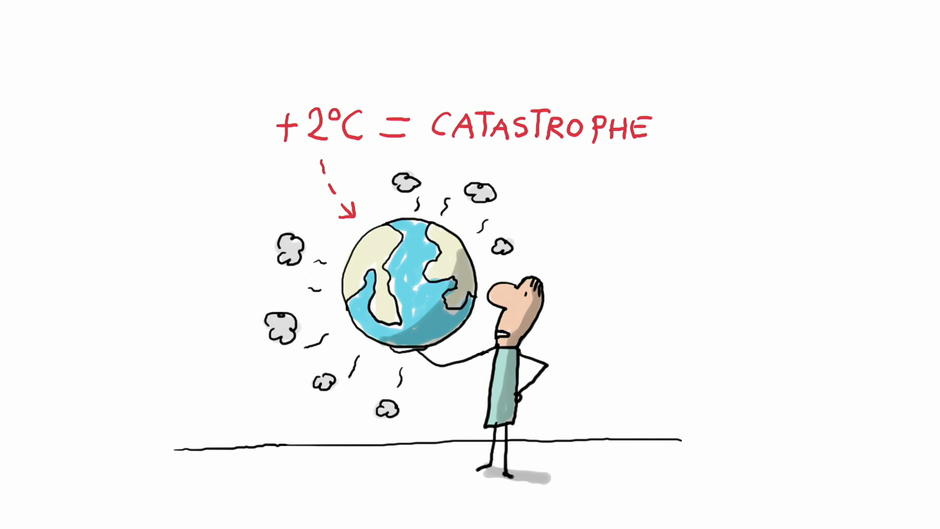 +2°C = CATASTROPHE